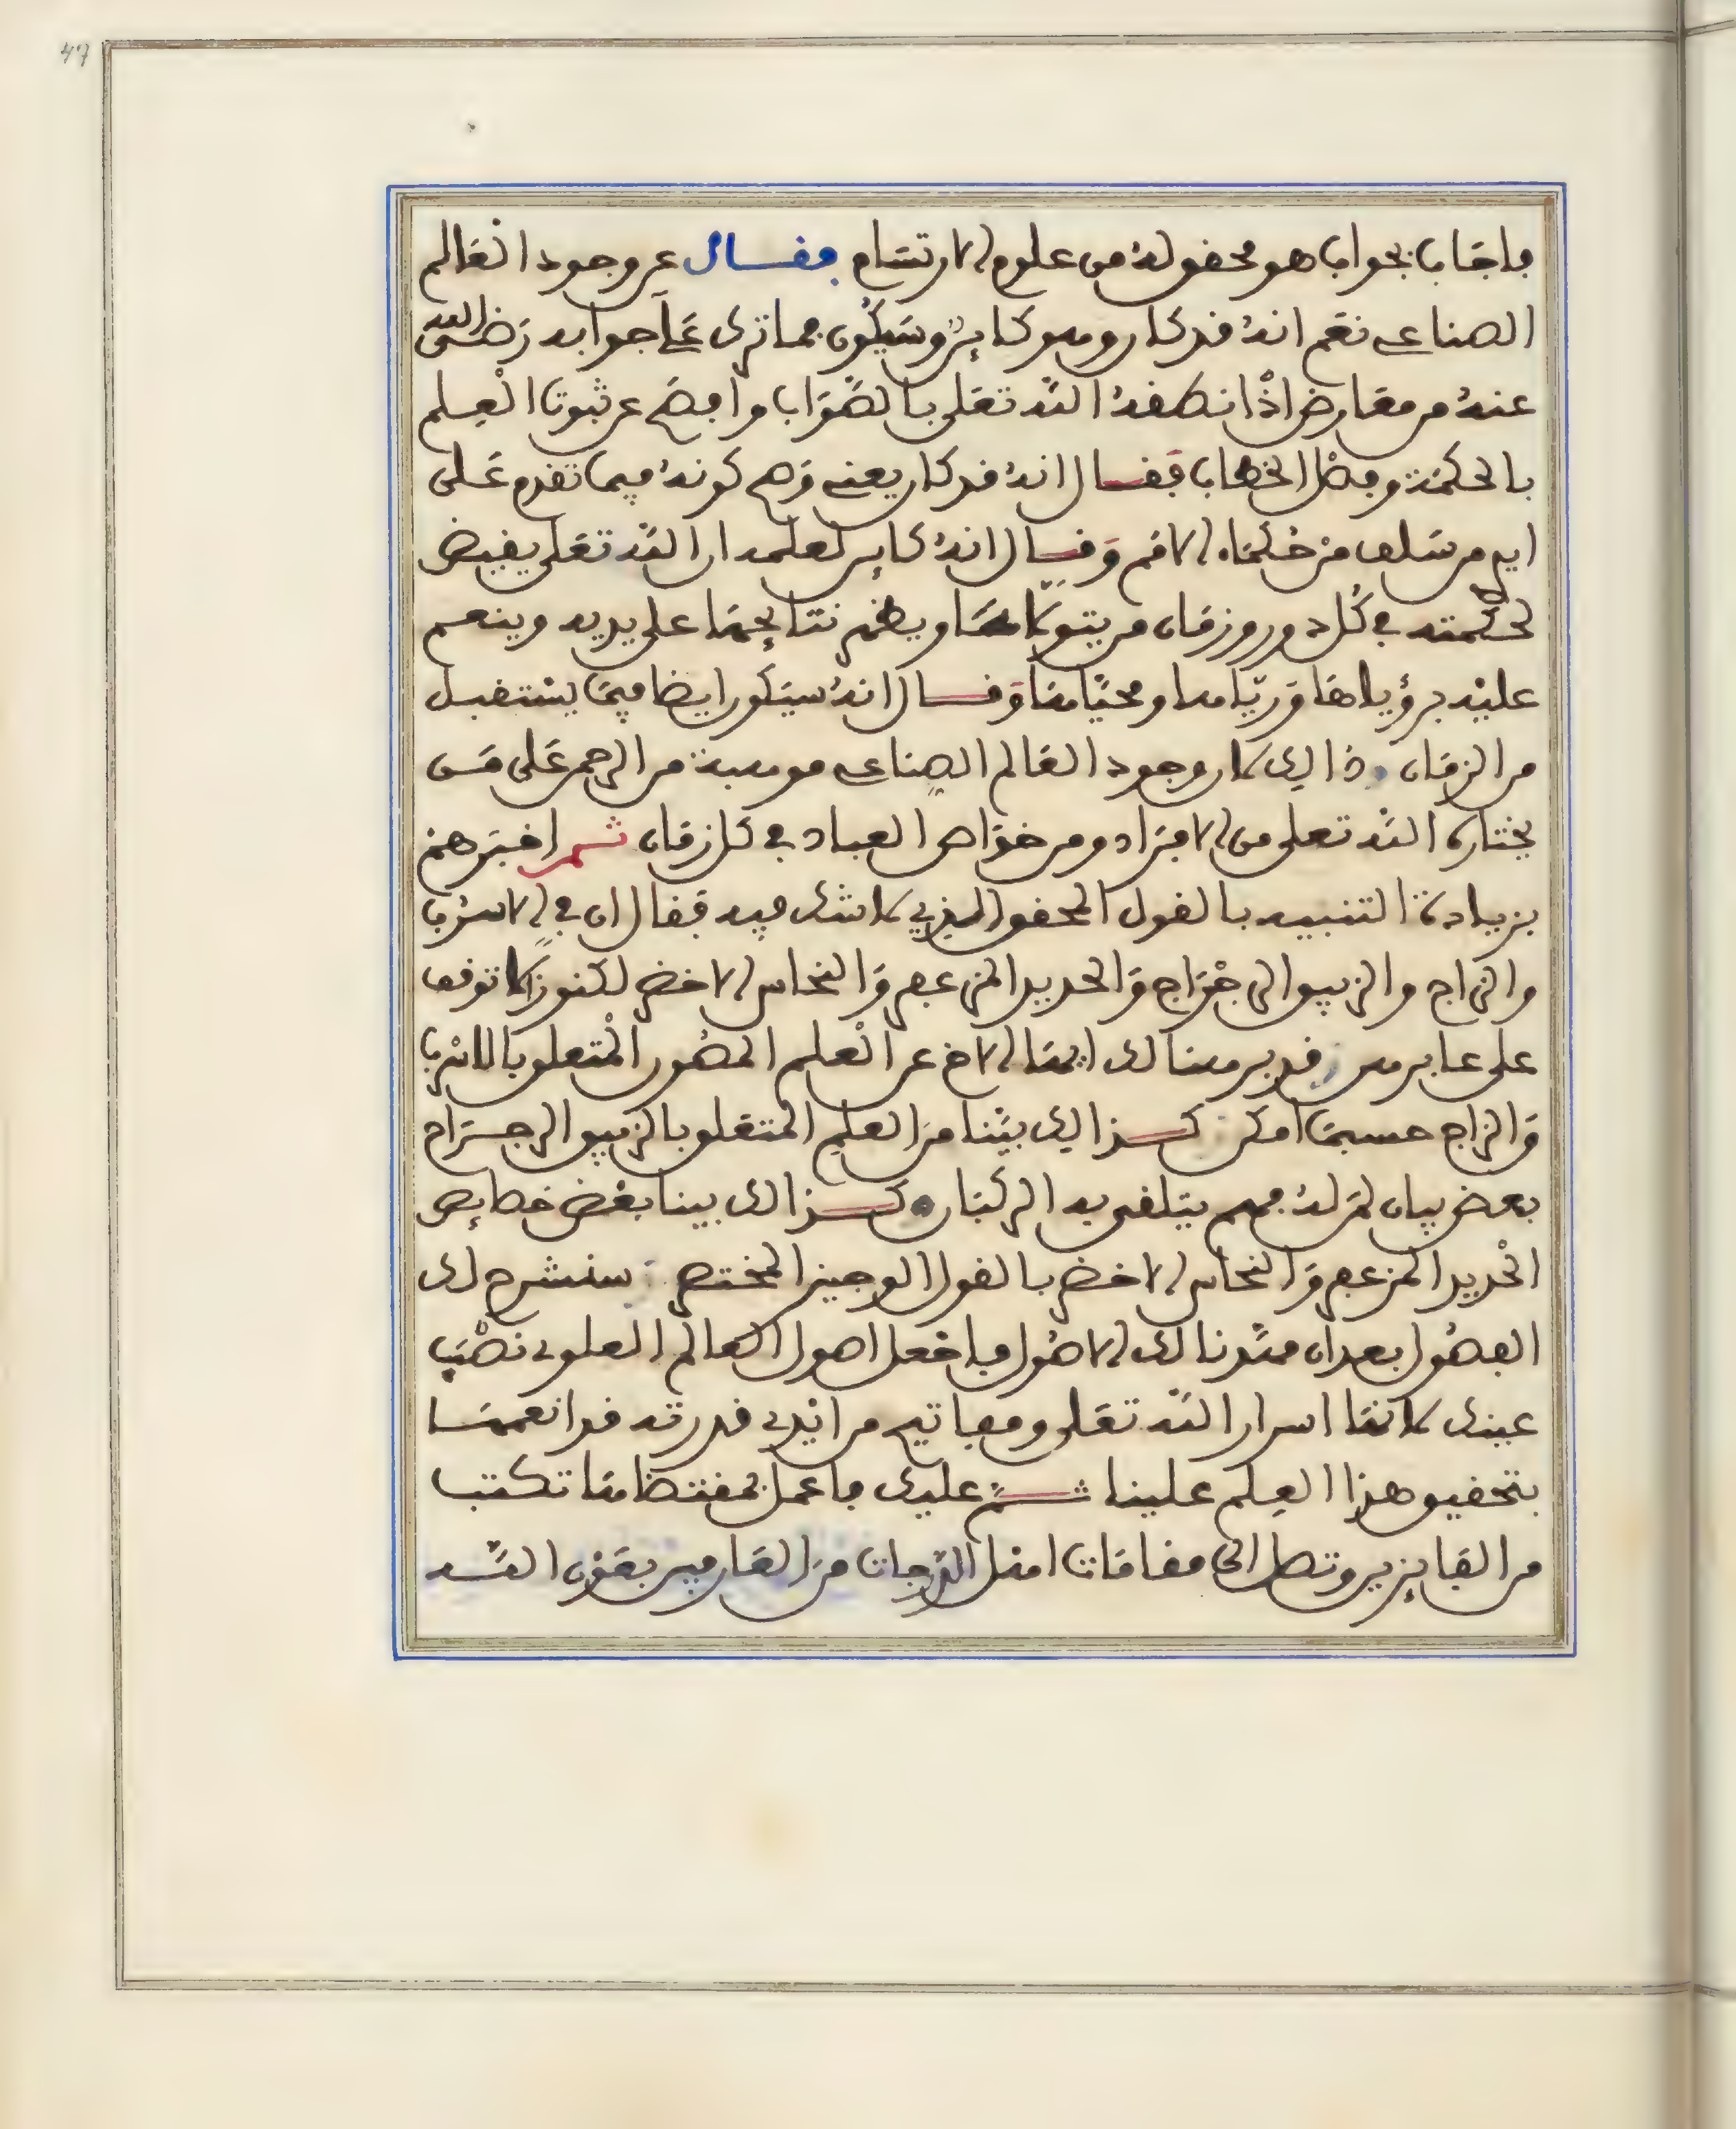 47
فاجاب بجواب هو محقق له من علوم الارتسام فقال عن وجود العالم
الصناعي نعم انه قد كان وهو كاين وسيكون فما ترى على جوابه رضي الله
عنه من معارض اذ انطقه الله تعلى بالصواب وافصح عن ثبوت العلم
بالحكمة وفصل الخطاب فقال انه قد كان يعني وصح كونه فيما تقدم على
ايدي من سلف من حكماء الامم وقال انه كاين لعلمه ان الله تعلى يقيض
لحكمته في كل دور وزمان من يتولاها ويظهر نتايجها على يديه وينعم
عليه برؤياها وريّاها ومحيّاها وقال انه سيكون ايضا فيما يستقبل
من الزمان وذالك لان وجود العالم الصناعي موهبة من الرحمن على من
يختاره الله تعلى من الافراد ومن خواص العباد في كل زمان ثم اخبرهم
بزيادة التنبيه بالقول المحقق الذي لا شك فيه فقال ان في الاسرب
والزاج والزيبق الرجراج والحديد المزعفر والنحاس الاخضر لكنوزا لا توقف
على غابرهن قد برهنا لك ايها الاخ عن العلم المصون المتعلق بالاسرب
والزاج حسبما امكن كذالك بيّنا من العلم المتعلق بالزيبق الرجراج
بعض بيان لمن له فهم يتلقى به الركبان وكذالك بينا بعض خصايص
الحديد المزعفر والنحاس الاخضر بالقول الوجيز المختصر سنشرح لك
الفصول بعد ان مهّدنا لك الاصول فاجعل اصول العالم العلوي نصب
عينك لانها اسرار الله تعلى ومفاتيح من ايدي قدرته قد انعم
بتحقيق هذا العلم علينا ثم عليك فاعمل بمقتضاها تكتب
من الفايزين وتصل الى مقامات اهل الدرجات من العارفين بعون الله